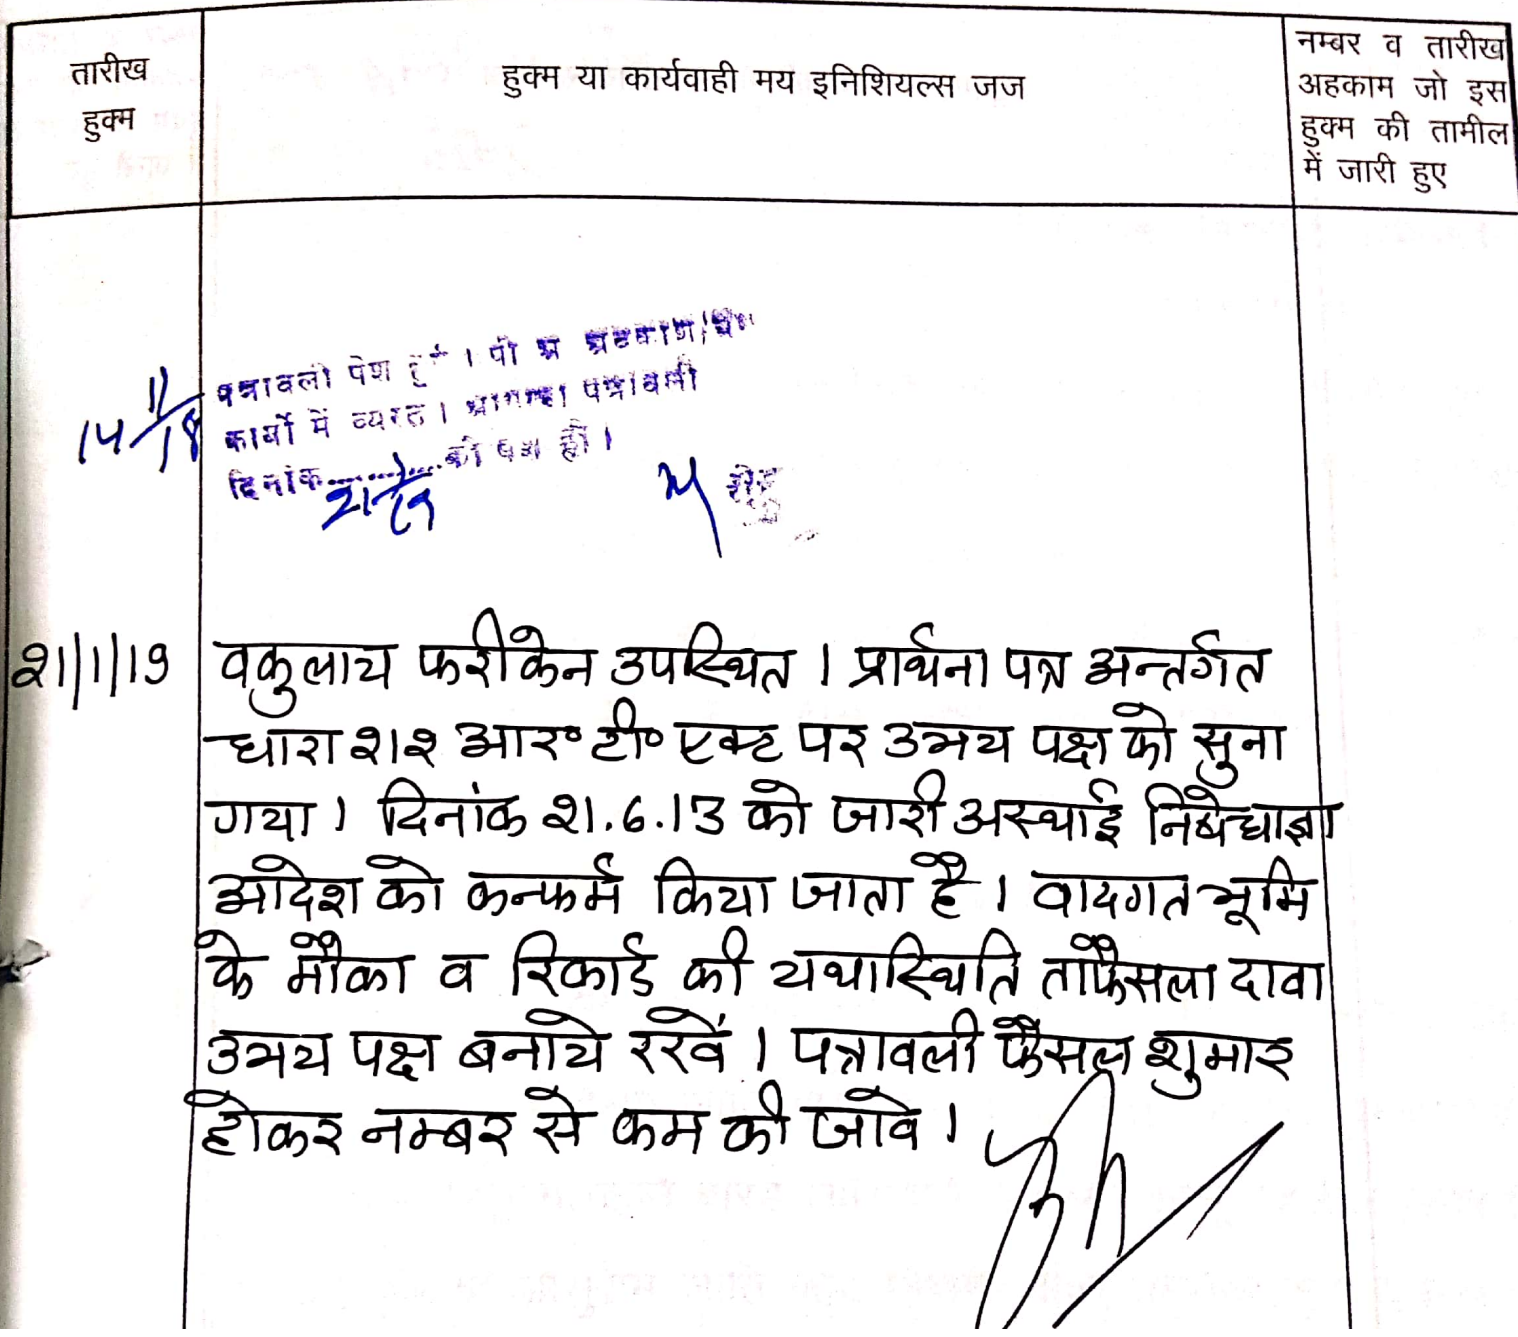 तारीख
हुक्म
हुक्म या कार्यवाही मय इनिशियल्स जज
नम्बर व तारीख
अहकाम जो इस
हुक्म की तामील
में जारी हुए
14/11/18
पत्रावली पेश हुई । पी
कार्यो में व्यस्त । पत्रावली
दिनांक ........... को पेश हो ।
21/1/19
21/1/19
वकुलाय फरीकेन उपस्थित । प्रार्थना पत्र अन्तर्गत
धारा 212 आर० टी० एक्ट पर उभय पक्ष को सुना
गया । दिनांक 21.6.13 को जारी अस्थाई निषेधाज्ञा
आदेश को कन्फर्म किया जाता है । वादगत भूमि
के मौका व रिकार्ड की यथास्थिति ताफैसला दावा
उभय पक्ष बनाये रखें । पत्रावली फैसल शुमार
होकर नम्बर से कम की जावे ।